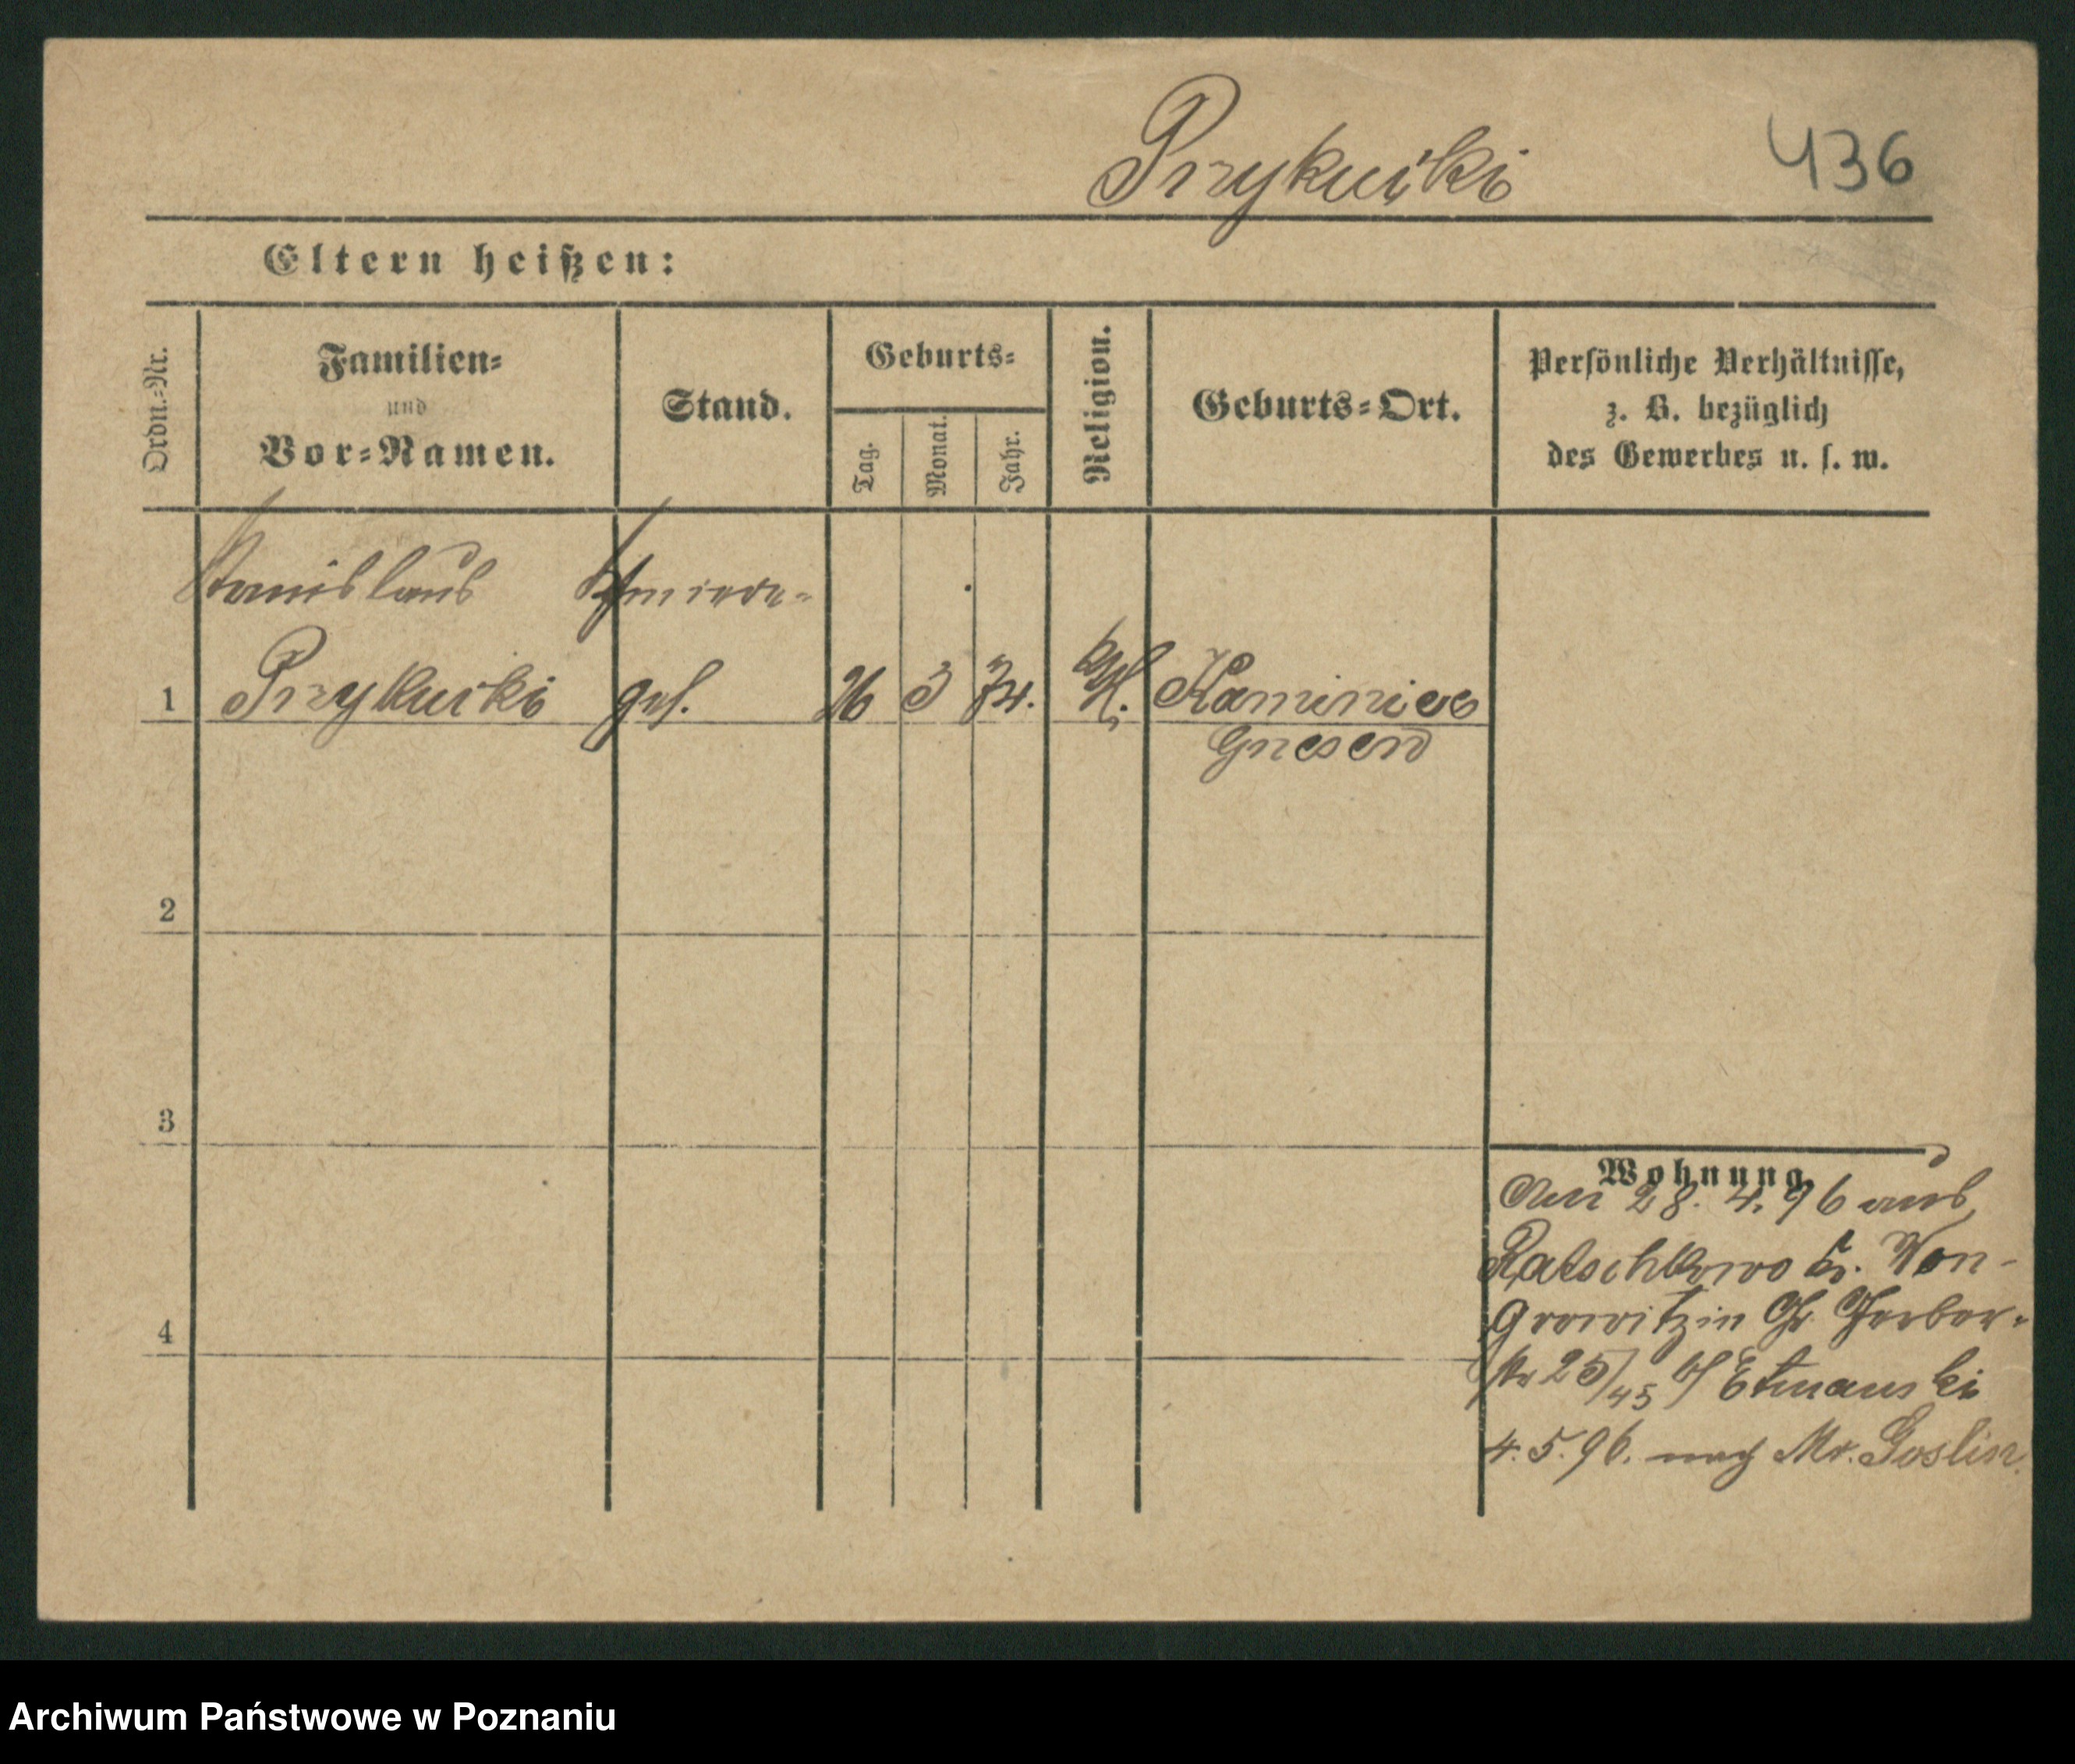 Przykucki
436
Eltern heißen:
Ordn.-Nr.
Familien-
und
Vor-Namen.
Stand.
Geburts-
Tag.
Monat.
Jahr.
Religion.
Geburts-Ort.
Persönliche Verhältnisse,
z. B. bezüglich
des Gewerbes u. s. w.
Stanislaus
Schmiede-
1
Przykucki
ges.
26
3
74.
kth.
Kaminiec
Gnesen
2
3
Wohnung
28. 4. 96 aus
Ratschkowo Kr. Won-
growitz in Gr. Gerber-
4
str 25/45 b/ Etmanski
4. 5. 96. nach Mr. Goslin.
Archiwum Państwowe w Poznaniu